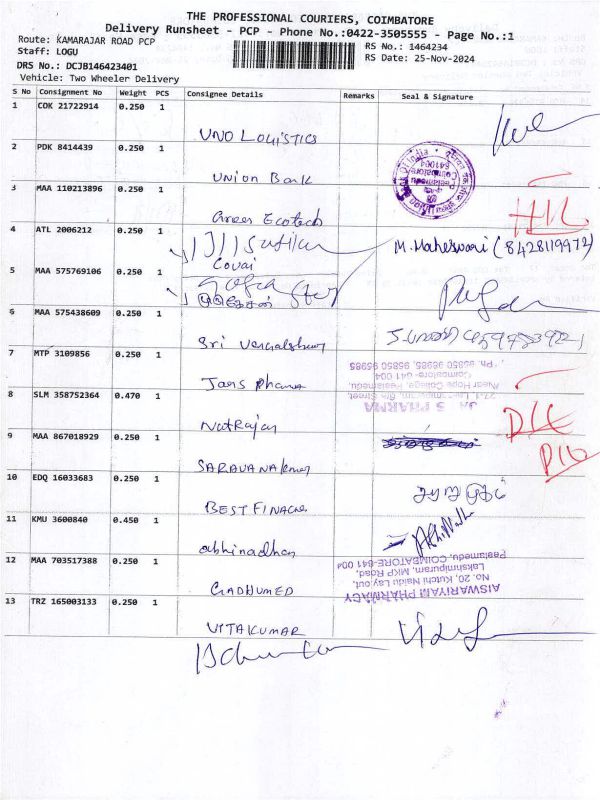 THE PROFESSIONAL COURIERS, COIMBATORE
Delivery Runsheet - PCP - Phone No.:0422-3505555 - Page No.:1
Route: KAMARAJAR ROAD PCP
Staff: LOGU
DRS No.: DCJB146423401
Vehicle: Two Wheeler Delivery
RS No.: 1464234
RS Date: 25-Nov-2024
S No Consignment No Weight PCS Consignee Details Remarks Seal & Signature
1 COK 21722914 0.250 1 UNO Logistics
2 PDK 8414439 0.250 1 Union Bank
3 MAA 110213896 0.250 1 Green Ecotech
4 ATL 2006212 0.250 1 Covai M. Maheswari (8428119972)
5 MAA 575769106 0.250 1
6 MAA 575438609 0.250 1 Sri
7 MTP 3109856 0.250 1 Pharma
JA S PHARMA
Coimbatore- 641 004
Ph: 95850 98985, 95850 95985
8 SLM 358752364 0.470 1 Natrajan
9 MAA 867018929 0.250 1 SARAVANAkumar
10 EDQ 16033683 0.250 1 BEST FINACE
11 KMU 3600840 0.450 1 abhinadhan
12 MAA 703517388 0.250 1
AISWARIYAM PHARMACY
No. 20, Kutchi Naidu Layout,
Lakshmipuram, MKP Road,
Peelamedu, COIMBATORE-641 004
13 TRZ 165003133 0.250 1 VITAKUMAR